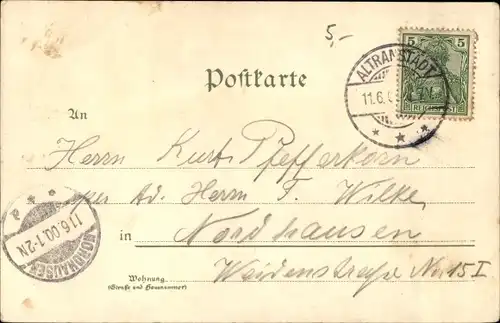 5,-
5 5
REICHSPOST
ALTRANSTÄDT
11.6.
Postkarte
An
Herrn Kurt Pfefferkorn
per Ad. Herrn F. Wilke
in Nordhausen
Weidenstraße No 15 I
Wohnung
(Straße und Hausnummer)
NORDHAUSEN
11.6.00.1-2N